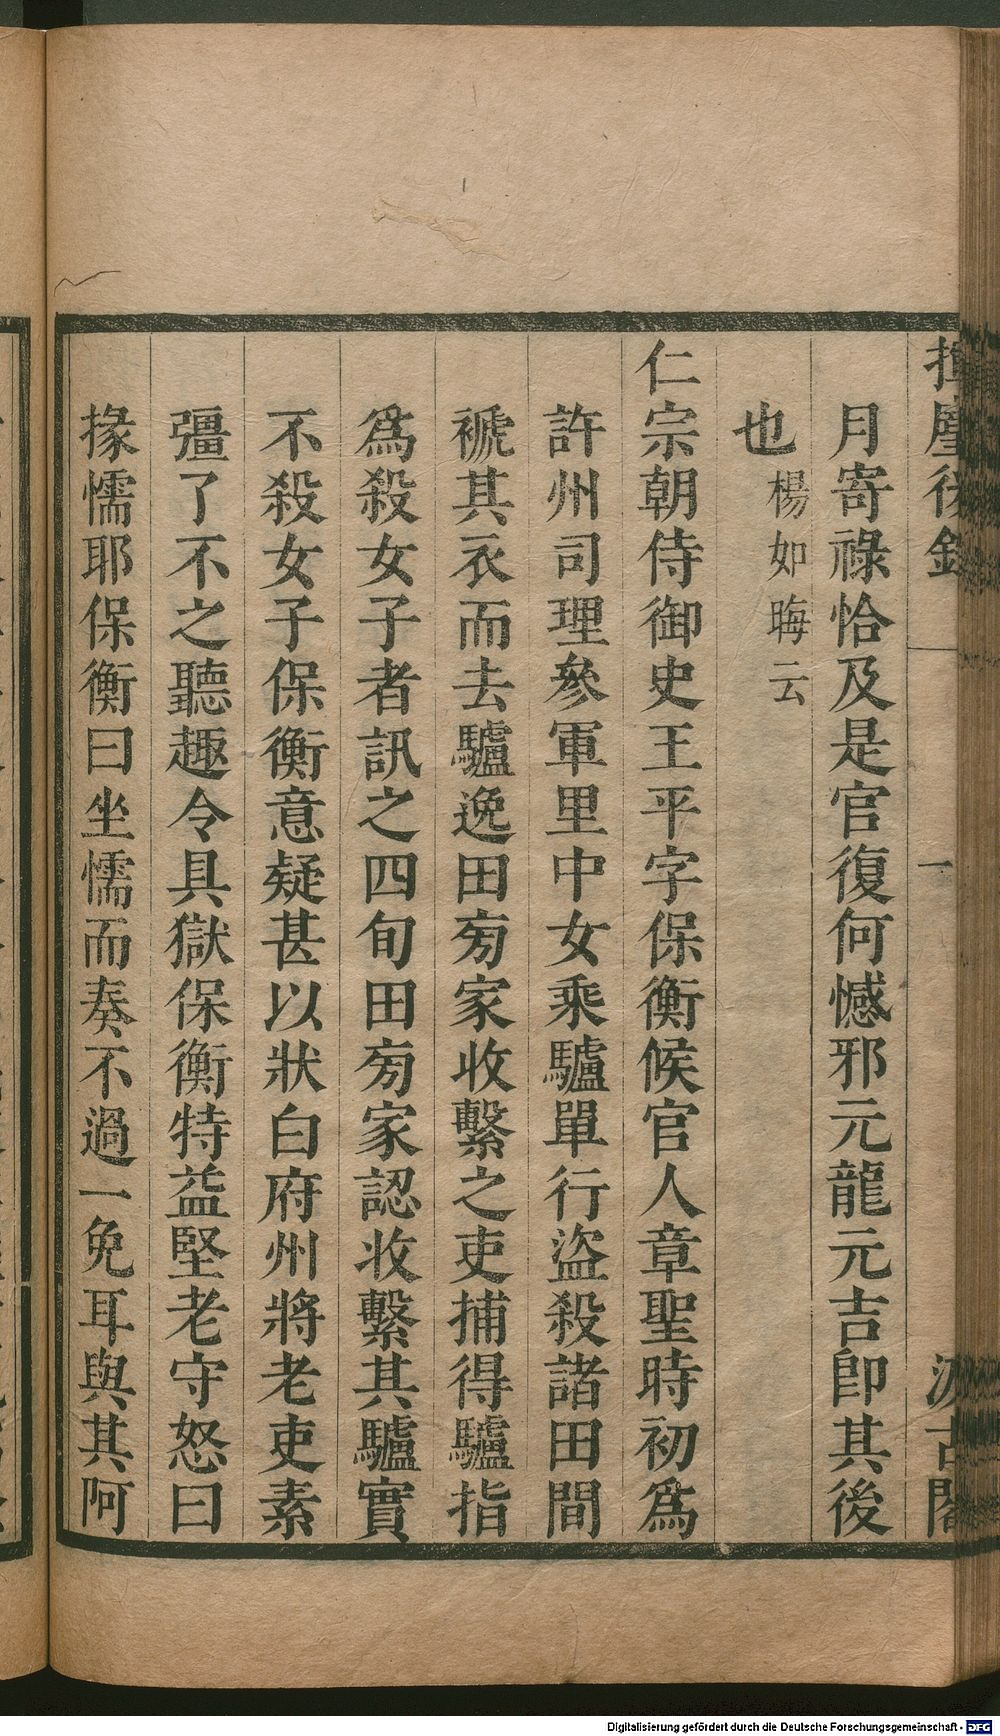 揮麈後錄 一 汲古閣
月寄祿恰及是官復何憾邪元龍元吉卽其後
也楊如晦云
仁宗朝侍御史王平字保衡候官人章聖時初爲
許州司理參軍里中女乘驢單行盜殺諸田間
褫其衣而去驢逸田旁家收繫之吏捕得驢指
爲殺女子者訊之四旬田旁家認收繫其驢實
不殺女子保衡意疑甚以狀白府州將老吏素
彊了不之聽趣令具獄保衡特益堅老守怒曰
掾懦耶保衡曰坐懦而奏不過一免耳與其阿
Digitalisierung gefördert durch die Deutsche Forschungsgemeinschaft - DFG